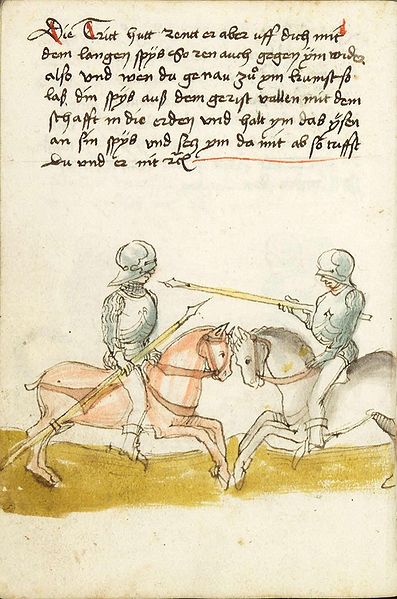 Die Tritt hutt rentt er aber uff dich mitt
dem langen spÿs So ren auch gegen ÿm wider
also Und wen du genau zuͦ ÿm kumst so
las din spÿs aus dem gerist vallen mit dem
schafft in die erden und halt ÿm das ÿsen
an sin spÿs und secz ÿm da mit ab so trifft
du und er nit